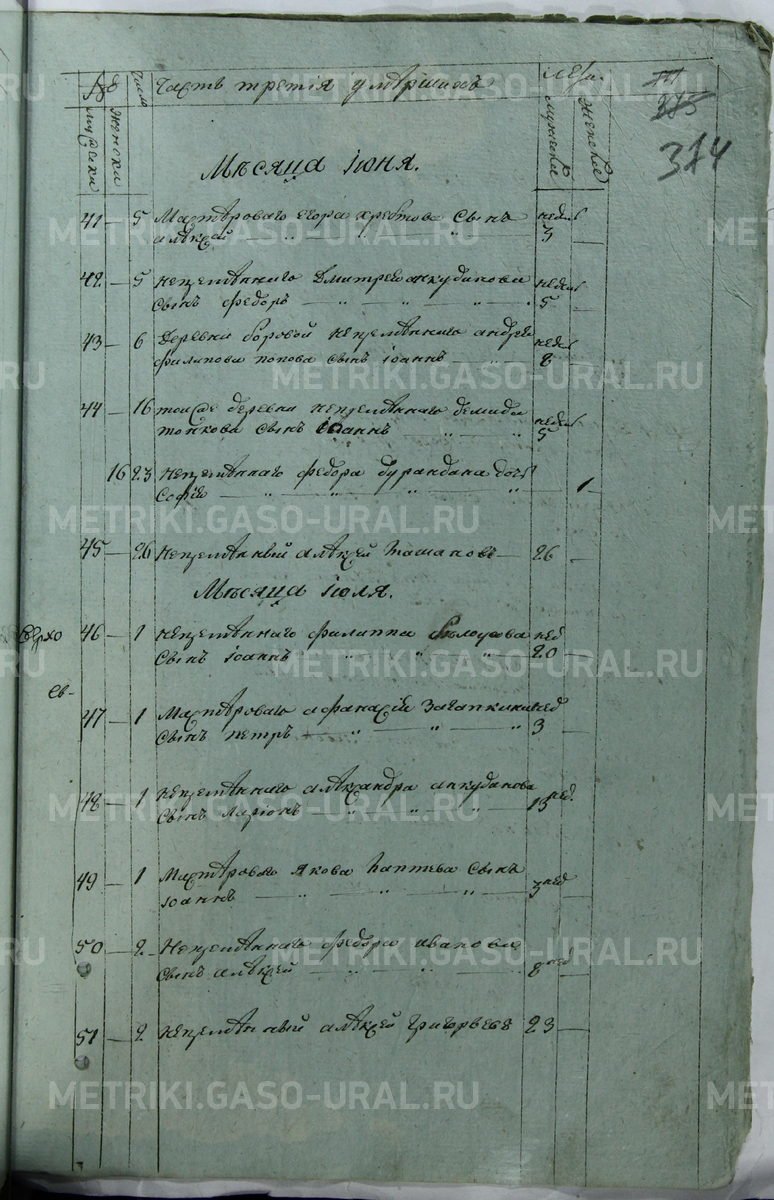 №
Число
Часть третія умершихъ
Лета.
мужески
женски
мужеское
женское
375
374
Мѣсяца іюня.
41 — 5 Мастероваго егора хребтова сынъ недел
алексей — „ — „ — „ 3 —
42 — 5 Непременнаго Дмитрея анкудинова недел
сынъ федоръ — „ — „ — „ 5 —
43 — 6 Деревни боровой непременнаго андрея недел
филипова попова сынъ іоаннъ — „ 8 —
44 — 16 тойже деревни непременнаго демида недел
топкова сынъ іоаннъ — „ — „ 5
16 23 Непременнаго федора бурандина дочь
Софія — „ — „ — „ — „ 1
45 — 26 Непременный алексей Ташановъ — 26 —
Мѣсяца іюля.
46 — 1 непременнаго филиппа белоусова нед
сынъ іоаннъ „ — „ — „ 20 —
ев-
47 — 1 Мастероваго афанасія Загапкина нед
сынъ петръ — „ — „ — „ 3 —
48 — 1 непременнаго александра анкудинова
сынъ ларіонъ — „ — „ — „ 13 нед.
49 — 1 Мастероваго якова лаптева сынъ
іоаннъ — „ — „ — „ 3 нед
50 — 2 Непременнаго федора иванова
сынъ алексей — „ — „ — 8 нед
51 — 2 непременный алексей григорьевъ 23 —
METRIKI.GASO-URAL.RU